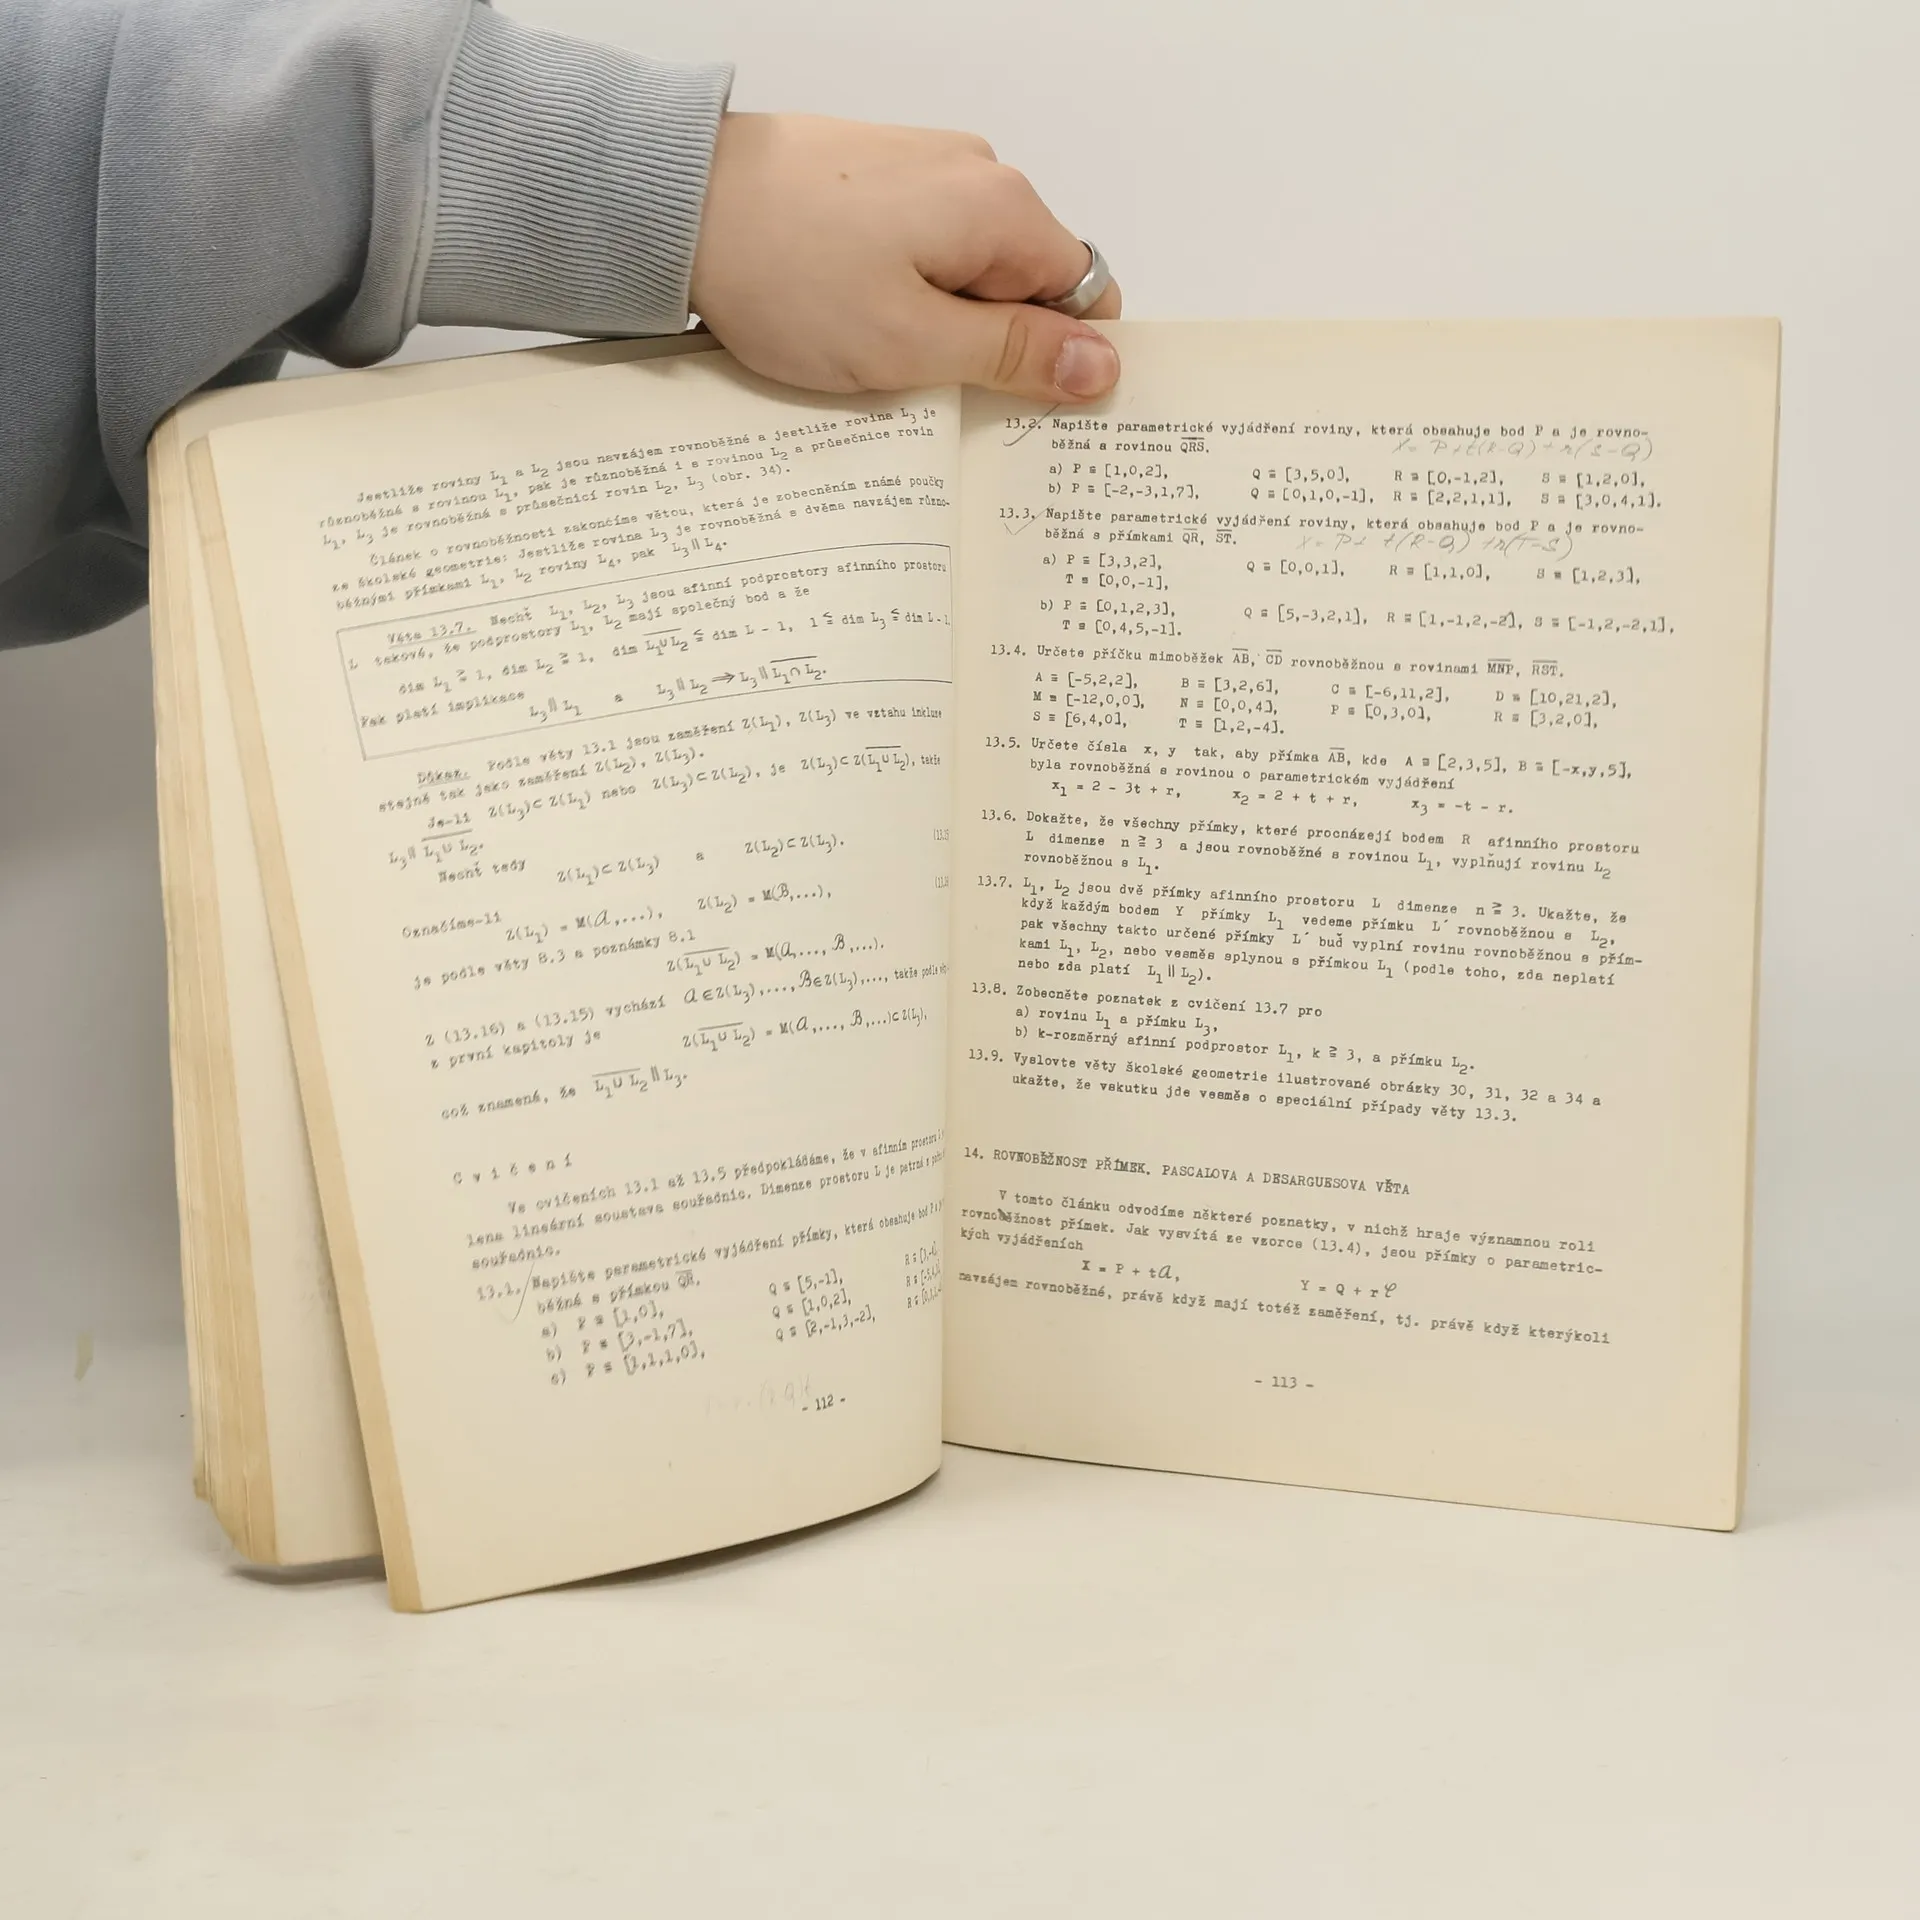 Jestliže roviny L₁ a L₂ jsou navzájem rovnoběžné a jestliže rovina L₃ je
různoběžná s rovinou L₁, pak je různoběžná i s rovinou L₂ a průsečnice rovin
L₁, L₃ je rovnoběžná s průsečnicí rovin L₂, L₃ (obr. 34).
Článek o rovnoběžnosti zakončíme větou, která je zobecněním známé poučky
ze školské geometrie: Jestliže rovina L₃ je rovnoběžná s dvěma navzájem různo-
běžnými přímkami L₁, L₂ roviny L₄, pak L₃ ∥ L₄.
Věta 13.7. Nechť L₁, L₂, L₃ jsou afinní podprostory afinního prostoru
L takové, že podprostory L₁, L₂ mají společný bod a že
dim L₁ ≧ 1, dim L₂ ≧ 1, dim L₁∪L₂ ≦ dim L - 1, 1 ≦ dim L₃ ≦ dim L - 1.
Pak platí implikace
L₃ ∥ L₁ a L₃ ∥ L₂ ⇒ L₃ ∥ L₁∩L₂.
Důkaz. Podle věty 13.1 jsou zaměření Z(L₁), Z(L₃) ve vztahu inkluse
stejně tak jako zaměření Z(L₂), Z(L₃).
Je-li Z(L₃)⊂ Z(L₁) nebo Z(L₃)⊂ Z(L₂), je Z(L₃)⊂ Z(L₁∪L₂), takže
L₃ ∥ L₁∪L₂.
Nechť tedy
Z(L₁)⊂ Z(L₃) a Z(L₂)⊂ Z(L₃).
Označíme-li
Z(L₁) = M(𝒜,...), Z(L₂) = M(ℬ,...),
je podle věty 8.3 a poznámky 8.1
Z(L₁∪L₂) = M(𝒜,..., ℬ,...).
Z (13.16) a (13.15) vychází 𝒜∈Z(L₃),...,ℬ∈Z(L₃),..., takže podle
z první kapitoly je
Z(L₁∪L₂) = M(𝒜,..., ℬ,...)⊂ Z(L₃),
což znamená, že L₁∪L₂ ∥ L₃.
Cvičení
Ve cvičeních 13.1 až 13.5 předpokládáme, že v afinním prostoru
lena lineární soustava souřadnic. Dimenze prostoru L je patrná z
souřadnic.
13.1. Napište parametrické vyjádření přímky, která obsahuje bod P a
běžná s přímkou QR.
a) P ≡ [1,0], Q ≡ [5,-1],
b) P ≡ [3,-1,7], Q ≡ [1,0,2],
c) P ≡ [1,1,1,0], Q ≡ [2,-1,3,-2],
- 112 -
13.2. Napište parametrické vyjádření roviny, která obsahuje bod P a je rovno-
běžná s rovinou QRS.
X = P+t(R-Q)+r(S-Q)
a) P ≡ [1,0,2], Q ≡ [3,5,0], R ≡ [0,-1,2], S ≡ [1,2,0],
b) P ≡ [-2,-3,1,7], Q ≡ [0,1,0,-1], R ≡ [2,2,1,1], S ≡ [3,0,4,1].
13.3. Napište parametrické vyjádření roviny, která obsahuje bod P a je rovno-
běžná s přímkami QR, ST.
X = P+ t(R-Q) +r(T-S)
a) P ≡ [3,3,2], Q ≡ [0,0,1], R ≡ [1,1,0], S ≡ [1,2,3],
T ≡ [0,0,-1],
b) P ≡ [0,1,2,3], Q ≡ [5,-3,2,1], R ≡ [1,-1,2,-2], S ≡ [-1,2,-2,1],
T ≡ [0,4,5,-1].
13.4. Určete příčku mimoběžek AB, CD rovnoběžnou s rovinami MNP, RST.
A ≡ [-5,2,2], B ≡ [3,2,6], C ≡ [-6,11,2], D ≡ [10,21,2],
M ≡ [-12,0,0], N ≡ [0,0,4], P ≡ [0,3,0], R ≡ [3,2,0],
S ≡ [6,4,0], T ≡ [1,2,-4].
13.5. Určete čísla x, y tak, aby přímka AB, kde A ≡ [2,3,5], B ≡ [-x,y,5],
byla rovnoběžná s rovinou o parametrickém vyjádření
x₁ = 2 - 3t + r, x₂ = 2 + t + r, x₃ = -t - r.
13.6. Dokažte, že všechny přímky, které procnázejí bodem R afinního prostoru
L dimenze n ≧ 3 a jsou rovnoběžné s rovinou L₁, vyplňují rovinu L₂
rovnoběžnou s L₁.
13.7. L₁, L₂ jsou dvě přímky afinního prostoru L dimenze n ≧ 3. Ukažte, že
když každým bodem Y přímky L₁ vedeme přímku L´ rovnoběžnou s L₂,
pak všechny takto určené přímky L´ buď vyplní rovinu rovnoběžnou s přím-
kami L₁, L₂, nebo vesměs splynou s přímkou L₁ (podle toho, zda neplatí
nebo zda platí L₁ ∥ L₂).
13.8. Zobecněte poznatek z cvičení 13.7 pro
a) rovinu L₁ a přímku L₃,
b) k-rozměrný afinní podprostor L₁, k ≧ 3, a přímku L₂.
13.9. Vyslovte věty školské geometrie ilustrované obrázky 30, 31, 32 a 34 a
ukažte, že vskutku jde vesměs o speciální případy věty 13.3.
14. ROVNOBĚŽNOST PŘÍMEK. PASCALOVA A DESARGUESOVA VĚTA
V tomto článku odvodíme některé poznatky, v nichž hraje významnou roli
rovnoběžnost přímek. Jak vysvítá ze vzorce (13.4), jsou přímky o parametric-
kých vyjádřeních
X = P + t𝒜, Y = Q + r𝒞
navzájem rovnoběžné, právě když mají totéž zaměření, tj. právě když kterýkoli
- 113 -